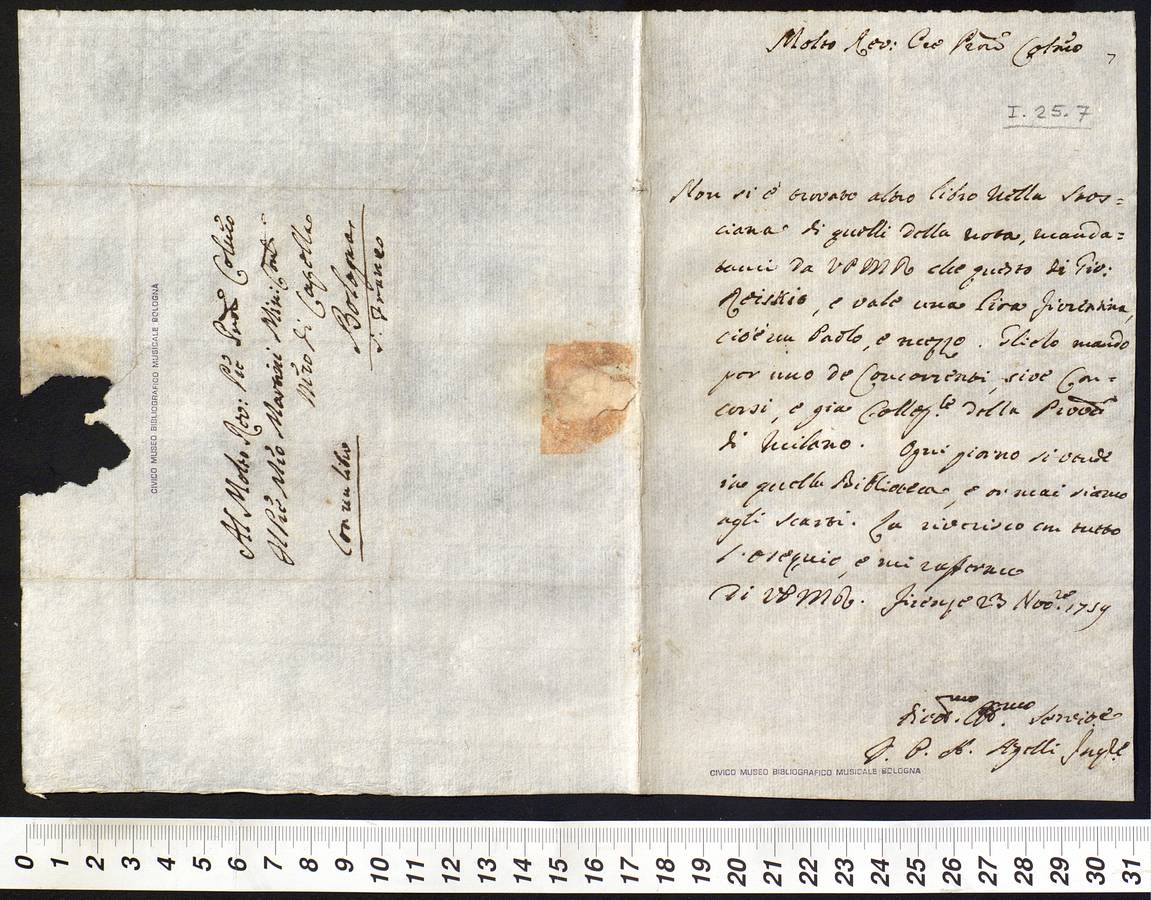 Molto Rev: Pre Pron Colmo
7
I. 25. 7
Non si è trovato altro libro nella Stos=
ciana di quelli della nota, manda=
tami da VPMR che questo di Gio:
Reiskio, e vale una lira fiorentina,
cioè un Paolo, e mezzo. Glielo mando
per uno de Concorrenti, sive Con=
corsi, e già Collegle della Provca
di Milano. Ogni giorno si vende
in quella Biblioteca, e or mai siamo
agli scarti. La riverisco con tutto
l'osequio, e mi raffermo
Di VPMR. Firenze 23 Novre. 1759
Servire
F. P. A. Azelli Inqre
CIVICO MUSEO BIBLIOGRAFICO MUSICALE BOLOGNA
Al Molto Rev: Pre Pron Colmo
Il Pre Mro Martini Min: Conle
Mro di Capella
Bologna
S. Franco
Con un libro
CIVICO MUSEO BIBLIOGRAFICO MUSICALE BOLOGNA
0 1 2 3 4 5 6 7 8 9 10 11 12 13 14 15 16 17 18 19 20 21 22 23 24 25 26 27 28 29 30 31